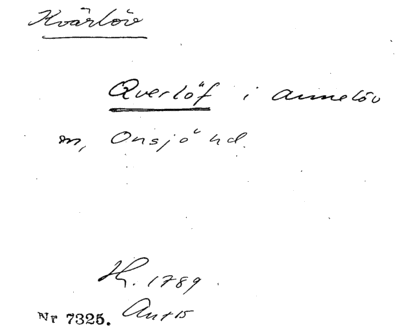 Kvärlöv
Qverlöf i Annelöv
sn, Onsjö hd.
H. 1789.
Nr 7325. Ant 15